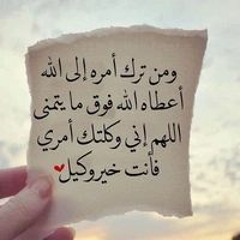 ومن ترك أمره إلى الله
أعطاه الله فوق ما يتمنى
اللهم إني وكلتك أمري
فأنت خير وكيل